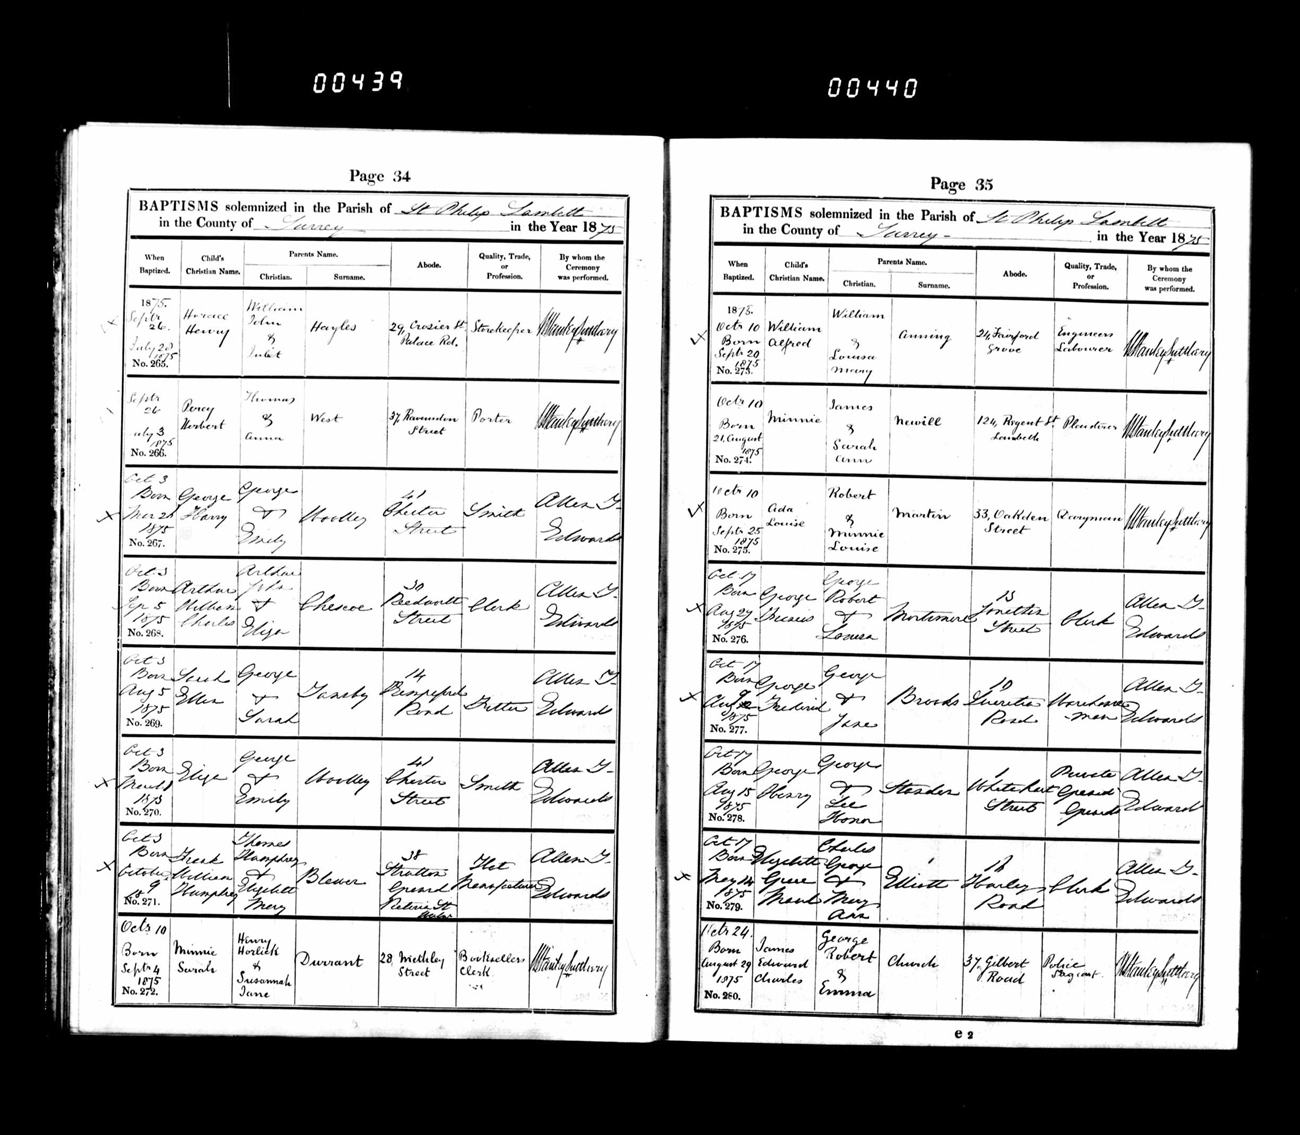 00439
00440
Page 34
BAPTISMS solemnized in the Parish of St Philip Lambeth
in the County of Surrey in the Year 1875
When Baptized.
Child's Christian Name.
Parents Name.
Christian.
Surname.
Abode.
Quality, Trade, or Profession.
By whom the Ceremony was performed.
1875.
Septr
26.
July 20
1875
No. 265.
Horace
Henry
William
John
&
Juliet
Hayles
29, Crozier St.
Palace Rd.
Storekeeper
Septr
26
uly 3
1875
No. 266.
Percy
Herbert
Thomas
&
Anna
West
37, Ravensdon
Street
Porter
Oct 3
Born
1875
No. 267.
George
Harry
George
&
Emily
Woolley
41
Chester
Street
Smith
Allen T.
Edwards
Oct 3
Born
Sep 5
1875
No. 268.
Arthur
William
Charles
Arthur
&
Eliza
30
Street
Clerk
Allen T.
Edwards
Oct 3
Born
Aug 5
1875
No. 269.
Sarah
Ellen
George
&
Sarah
Tansley
14
Road
Allen T.
Edwards
Oct 3
Born
March 1
1873
No. 270.
Eliza
George
&
Emily
Woolley
41
Chester
Street
Smith
Allen T.
Edwards
Oct 3
Born
October
9
No. 271.
Frank
William
Humphrey
Thomas
Humphrey
&
Elizabeth
Mary
38
Stratton
Ground
Hat
Manufacturer
Allen T.
Edwards
Octr 10
Born
Septr 4
1875
No. 272.
Minnie
Sarah
Henry
Horlick
&
Susannah
Jane
Durrant
28, Methley
Street
Booksellers
Clerk
Page 35
BAPTISMS solemnized in the Parish of St Philip Lambeth
in the County of Surrey in the Year 1875
When Baptized.
Child's Christian Name.
Parents Name.
Christian.
Surname.
Abode.
Quality, Trade, or Profession.
By whom the Ceremony was performed.
1875.
Octr 10
Born
Septr 20
1875
No. 273.
William
Alfred
William
&
Louisa
Mary
Anning
24, Fairford
Grove
Engineers
Labourer
Octr 10
Born
21, August
1875
No. 274.
Minnie
James
&
Sarah
Ann
Newill
124, Regent St
Lambeth
Plasterer
Octr 10
Born
Septr 25
1875
No. 275.
Ada
Louise
Robert
&
Minnie
Louise
Martin
33, Oakden
Street
Quarryman
Oct 17
Born
Aug 27
1875
No. 276.
George
George
Robert
&
Louisa
Mortimore
Street
Clerk
Allen T.
Edwards
Oct 17
Born
Aug
1875
No. 277.
George
Frederick
George
&
Jane
Brooks
10
Lucretia
Road
Warehouse
-man
Allen T.
Edwards
Oct 17
Born
Aug 15
1875
No. 278.
George
Henry
George
&
Honor
1
White Hart
Street
Private
Grenad
Guards
Allen T.
Edwards
Oct 17
Born
May 14
1875
No. 279.
Elizabeth
Grace
Maud
Charles
George
&
Mary
Ann
Elliott
Harley
Road
Clerk
Allen T.
Edwards
Octr 24.
Born
August 29
1875
No. 280.
James
Edward
Charles
George
Robert
&
Emma
Church
37, Gilbert
Road
Police
Sergeant.
e 2